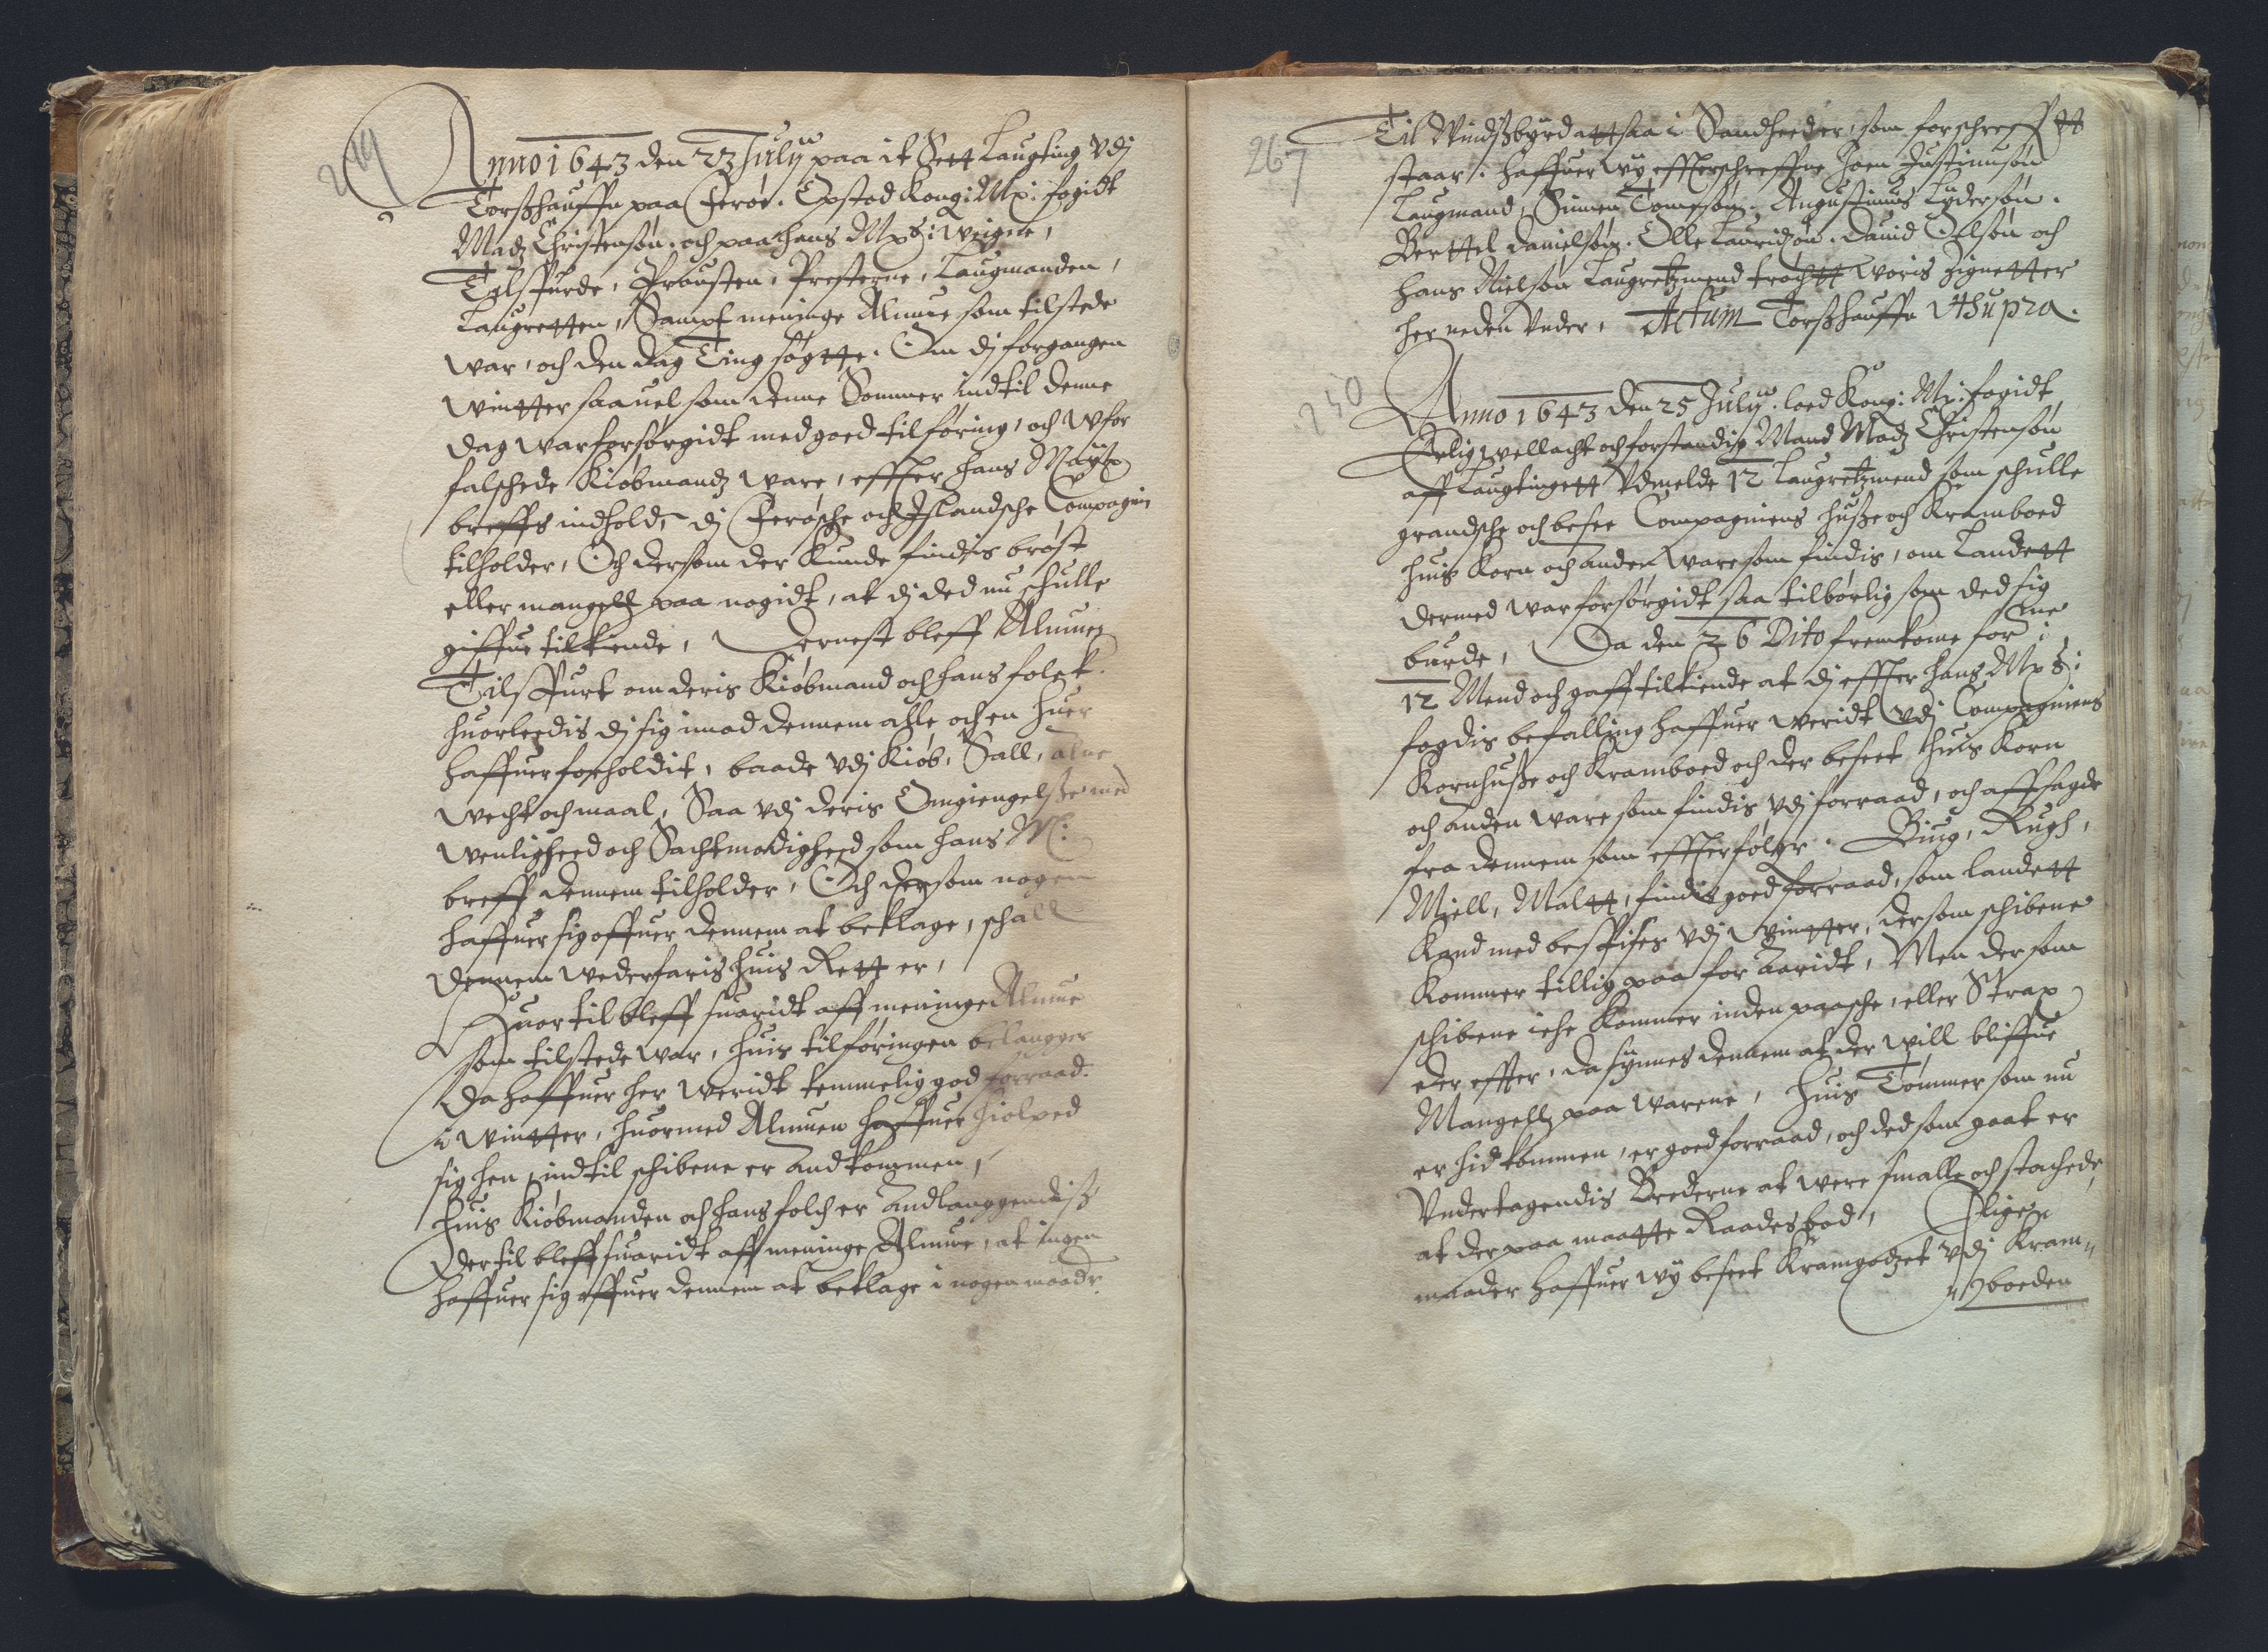 249
Anno 1643 den 23 Julÿ paa it Sett Laugting vdj
Torßhauffn paa Ferøe. Opstod Kong: Mx: fogidt
Madz Christensøn. och paa hans Mxs: weigne,
Tilspurde, Prousten, Presterne, Laugmanden,
Laugretten, Sampt meninge Almue som tilstede
war, och den dag Ting søgtte. Om dj forgangen
wintter saauelsom denne Sommer indtil denne
dag war forsørgidt med goed tilføring, och wfor
falschede Kiøbmandz ware, effter hans Maÿtz
breffs indhold, dj Ferøsche och Islandsche Compagni
tilholder, Och dersom der Kunde findis brøst
eller mangell paa nogidt, at dj ded nu schulle
giffue tilkiende, Dernest bleff Almuen
Tilspurt om deris Kiøbmand och hans folck.
huorleedis dj sig imod dennem alle och en huer
haffuer forholdit, baade vdj Kiøb, Sall, alne
wecht och maal, Saa vdj deris Omgiengelße med
wenligheed och Sachtmodigheed som hans M:
breff dennem tilholder, Och dersom nogen
haffuer sig offuer dennem at beklage, schall
dennem wederfaris huis Rett er,
Huortil bleff suaridt aff meninge Almue
som tilstede war, huis tilføringen belangger
da haffuer her weridt temmelig god forraad.
i wintter, huormed Almuen haffuer hiolped
sig hen, indtil schibene er andkommen,
huis Kiøbmanden och hans folch er andlanggendiß
dertil bleff suaridt aff meninge Almue, at ingen
haffuer sig offuer dennem at beklage i nogen maade.
267
Til Windißbyrd att saa i Sandheed er, som forschreffuett
staar. haffuer wÿ effterschreffne Joen Justinusøn
Laugmand, Simen Tomesøn. Augustinus Lydersøn.
Berttel Danielsøn. Olle Lauridzøn. Dauid Olsøn och
Hans Nielsøn Laugrettzmend trøchtt woris Zignetter
her neden vnder, Actum Torßhauffn vt Supra.
250
Anno 1643 den 25 Julÿ. loed Kong: Mx: fogidt
Erlig wellacht och forstandig Mand Madz Christensøn
aff Laugtingett vdmelde 12 Laugrettzmend som schulle
grandsche och besee Compagniens huße och Kramboed
huis Korn och anden ware som findis, om Landett
dermed war forsørgidt saa tilbørlig som ded sig
burde, Da den 26 Dito fremkome forne
12 Mend och gaff tilkiende at dj effter hans Mxs:
fogdis befalling haffuer weridt vdj Compagniens
Kornhuße och Kramboed och der beseet huis Korn
och anden ware som findis vdj forraad, och affsagde
fra dennem som effterfølger. Biug, Rugh,
Miell, Maltt, findis goed forraad, som landett
Kand med bespises vdj wintter, dersom schibene
Kommer tillig paa for aaridt, Men dersom
schibene iche Kommer inden paasche, eller Strax
der effter, da sÿnnes dennem at der will bliffue
Mangell paa warene, huis Tømmer som nu
er hidkommen, er goed forraad, och ded som gaat er
vndertagendis Brederne at were smalle och stachede,
at der paa maatte Raades bod, Jligen
maader haffuer wÿ beseet Kramgodzet vdj Kram
boeden